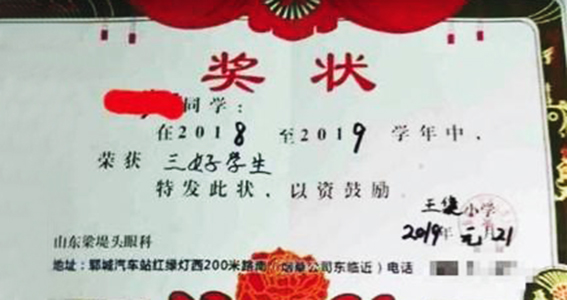 奖状
同学：
在2018至2019学年中，
荣获 三好学生
特发此状，以资鼓励
王 小学
2019年元月21
山东梁堤头眼科
地址：郓城汽车站红绿灯西200米路南（烟草公司东临近）电话